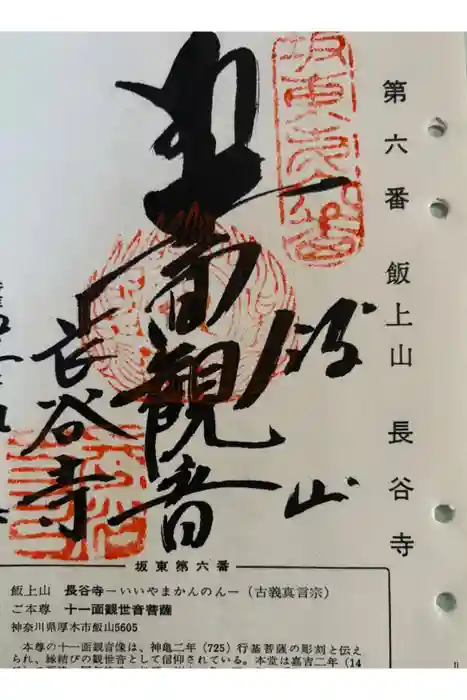 第六番 飯上山 長谷寺
坂東第六番
飯山
十一面観音
長谷寺
坂東第六番
飯上山 長谷寺－いいやまかんのん－（古義真言宗）
ご本尊 十一面観世音菩薩
神奈川県厚木市飯山5605
本尊の十一面観音像は、神亀二年（725）行基菩薩の彫刻と伝え
られ、縁結びの観世音として信仰されている。本堂は嘉吉二年（14